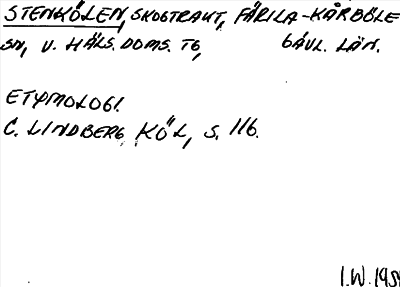 STENKÖLEN, SKOGTRAKT, FÄRILA-KÅRBÖLE
SN, V. HÄLS. DOMS. TG, GÄVL. LÄN.
ETYMOLOGI.
C. LINDBERG, KÖL, S. 116.
I.W. 195